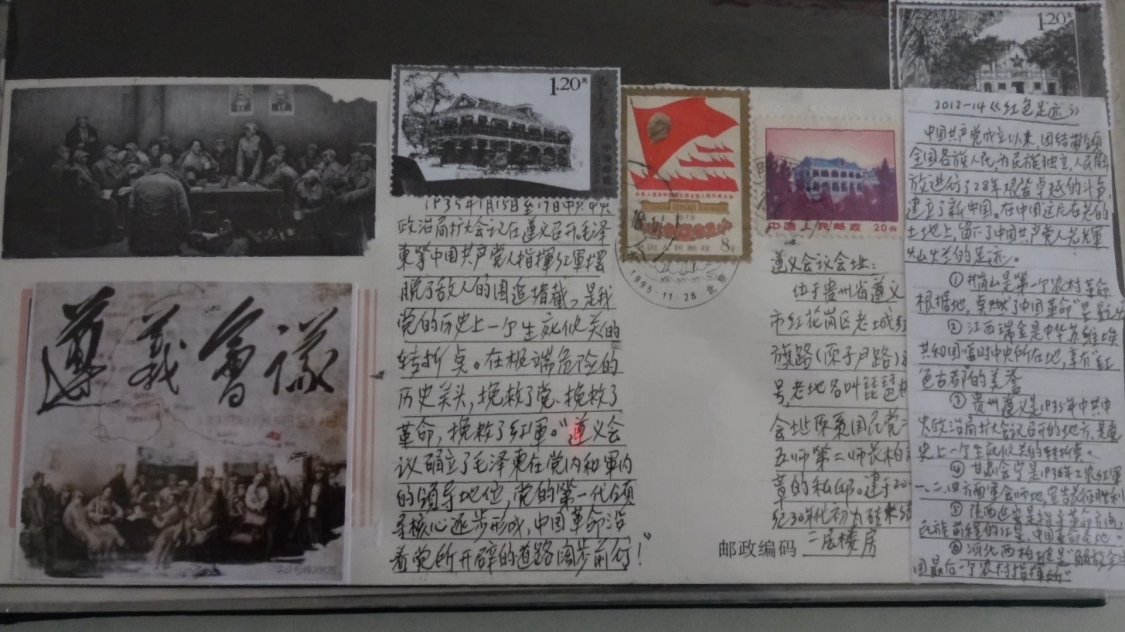 1.20元
1935年1月15日至17日中共中央
政治局扩大会议在遵义召开,毛泽
東等中国共产党人指揮红軍摆
脱了敌人的围追堵截,是我
党的历史上一个生死攸关的
转折点。在极端危险的
历史关头,挽救了党、挽救了
革命,挽救了红軍。“遵义会
议确立了毛泽東在党内和軍内
的领导地位,党的第一代领
导核心逐步形成,中国革命沿
着党所开辟的道路阔步前行!”
遵義會議
8分
1995.11.28 北京
中国人民邮政 20分
遵义会议会址:
位于贵州省遵义
市红花岗区老城红
旗路(原子尹路)
号,老地名叫琵琶桥
会址原系国民党
五师第二师长柏
音的私邸。建于20
纪30年代初为砖木结
邮政编码 二层楼房
1.20元
2012-14《红色足迹》
中国共产党成立以来,团结带领
全国各族人民,为民族独立、人民解
放进行了28年艰苦卓越的斗争,
建立了新中国。在中国这片古老的
土地上,留下了中国共产党人光輝
灿烂的足迹。
①井岗山是第一个农村革命
根据地,点燃了中国革命“星
②江西瑞金是中华苏维埃
共和国临时中央所在地,享有“红
色古都”的美誉
③贵州遵义是1935年中共中
央政治局扩大会议召开的地方,是党
史上一个生死攸关的转折点。
④甘肃会宁是1936年工农红軍
一、二、四方面軍会师地
⑤陕西延安是
⑥河北西柏坡是“解放全
国最后一个农村指揮所”